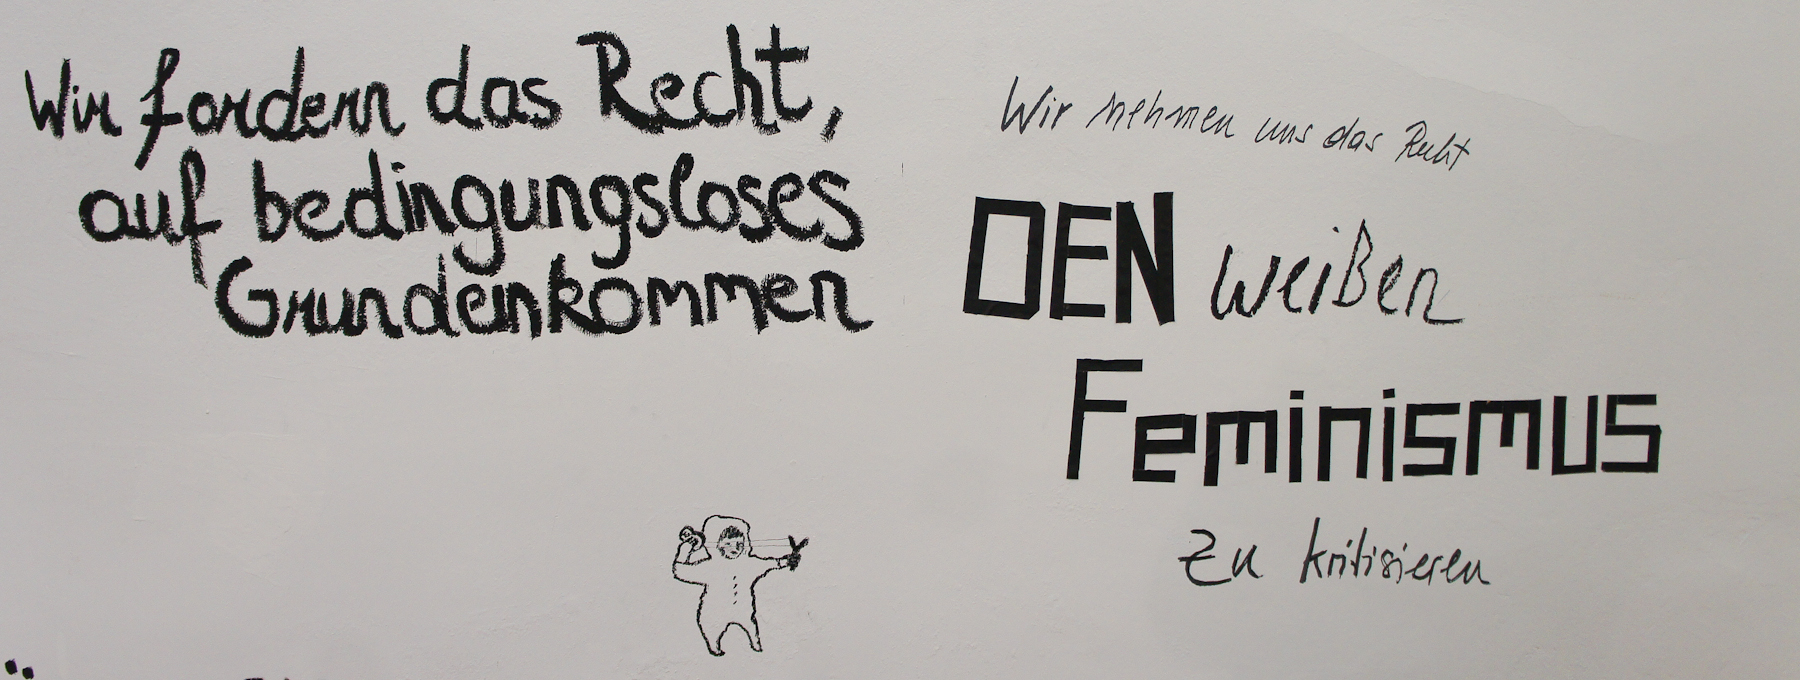 Wir fordern das Recht,
auf bedingungsloses
Grundeinkommen
Wir nehmen uns das Recht
DEN weißen
Feminismus
zu kritisieren